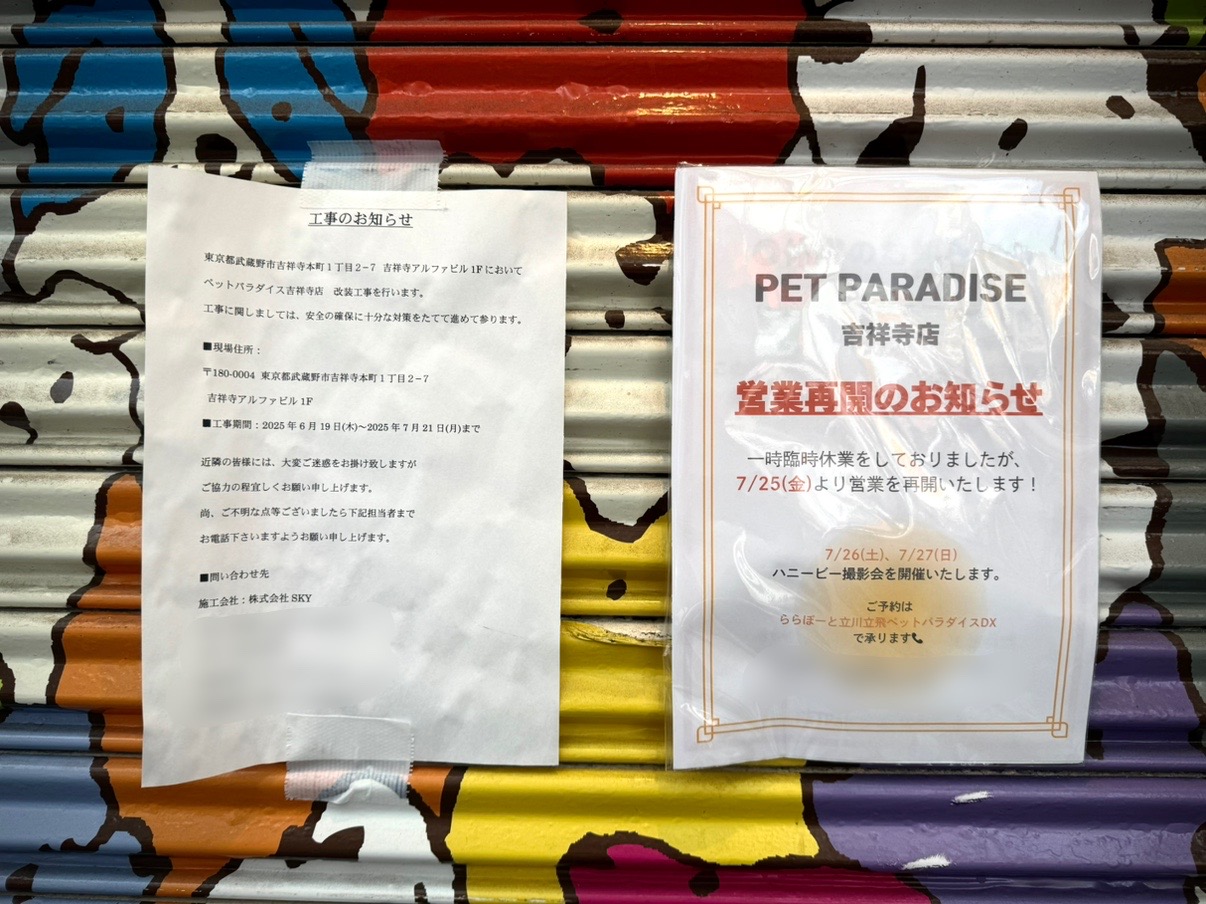 工事のお知らせ
東京都武蔵野市吉祥寺本町１丁目２−７ 吉祥寺アルファビル 1F において
ペットパラダイス吉祥寺店　改装工事を行います。
工事に関しましては、安全の確保に十分な対策をたてて進めて参ります。
■現場住所：
〒180-0004 東京都武蔵野市吉祥寺本町１丁目２−７
吉祥寺アルファビル 1F
■工事期間：2025 年 6 月 19 日(木)〜2025 年 7 月 21 日(月)まで
近隣の皆様には、大変ご迷惑をお掛け致しますが
ご協力の程宜しくお願い申し上げます。
尚、ご不明な点等ございましたら下記担当者まで
お電話下さいますようお願い申し上げます。
■問い合わせ先
施工会社：株式会社 SKY
PET PARADISE
吉祥寺店
営業再開のお知らせ
一時臨時休業をしておりましたが、
7/25(金)より営業を再開いたします！
7/26(土)、7/27(日)
ハニービー撮影会を開催いたします。
ご予約は
ららぽーと立川立飛ペットパラダイスDX
で承ります📞